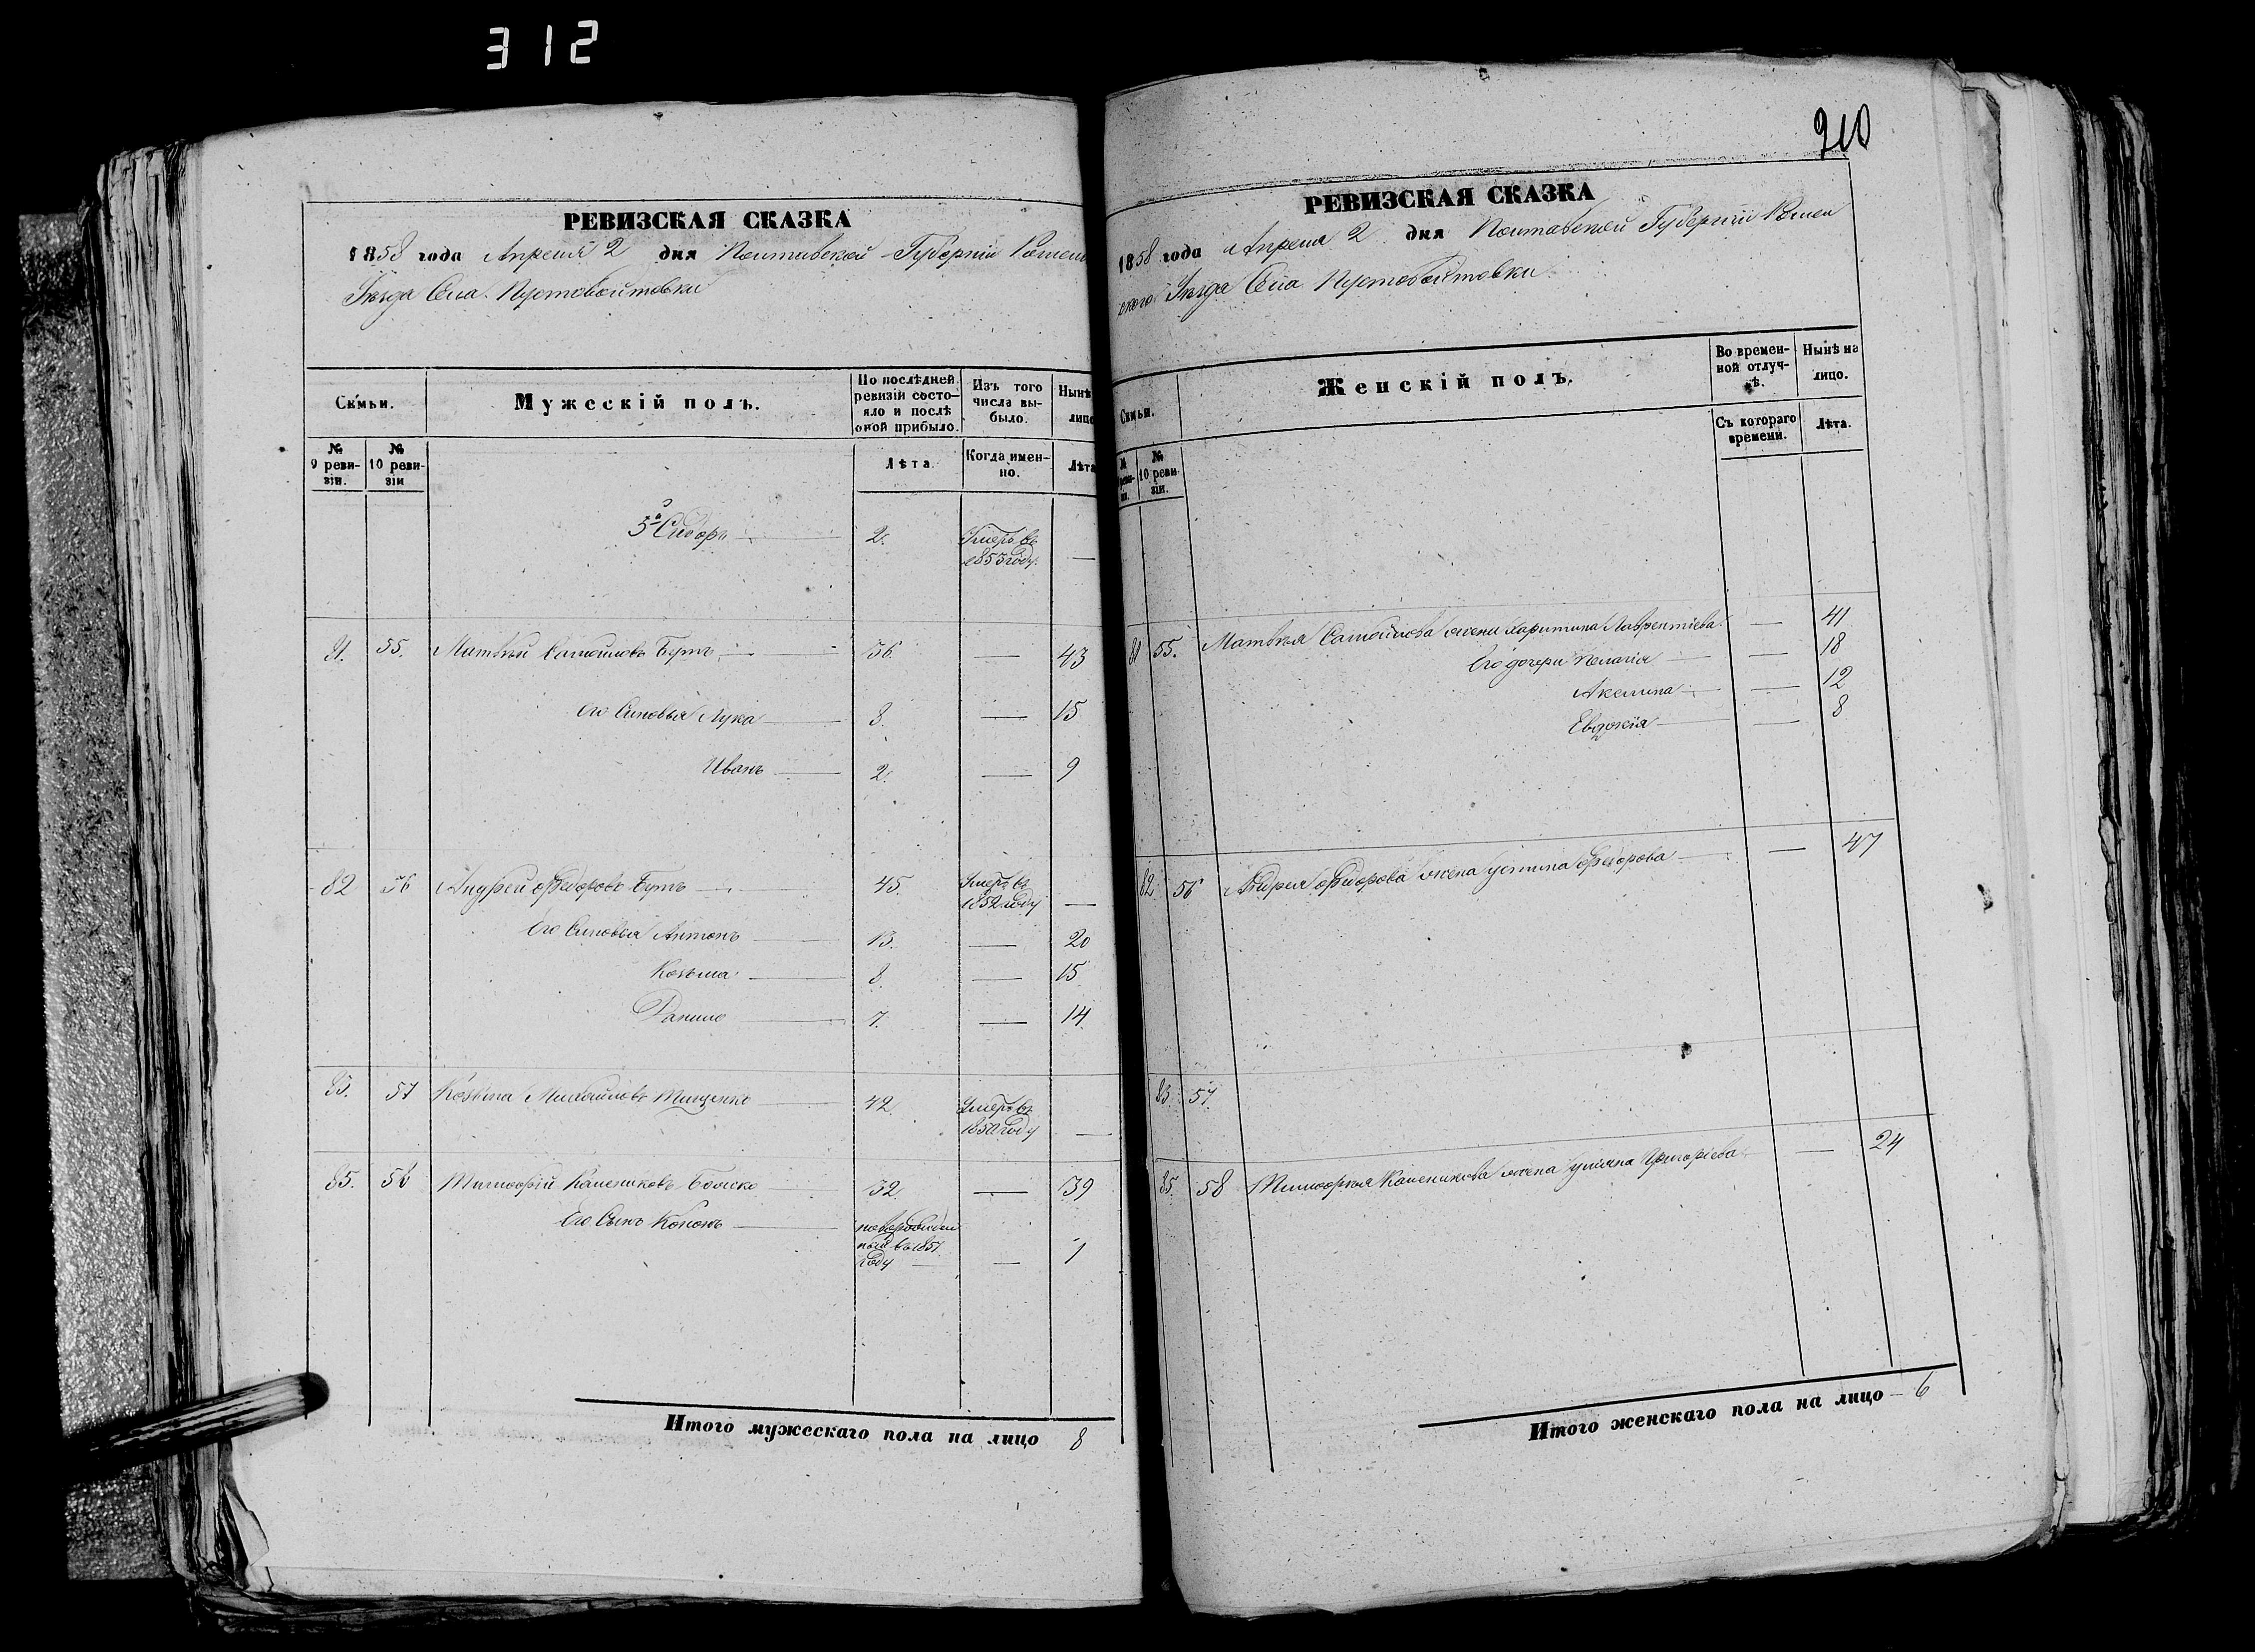 312
РЕВИЗСКАЯ СКАЗКА
1858 года Апреля 2 дня Полтавской Губерніи Ромен
Уѣзда Села Пустовойтовки
Семьи.
Мужескій полъ.
По послѣдней ревизіи состояло и послѣ оной прибыло.
Изъ того числа выбыло.
Нынѣ лицо
№ 9 ревизіи.
№ 10 ревизіи
Лѣта.
Когда именно.
Лѣта
3й Сидоръ 2. Умеръ въ 1853 году. —
81. 55. Матвѣй Самойловъ Бутъ 36. — 43
Его Сыновья Лука 8. — 15
Иванъ 2. — 9
82 56 Андрей Федоровъ Бутъ 45. Умеръ въ 1852 году —
Его Сыновья Антонъ 13. — 20
Козьма 8. — 15
Данило 7. — 14
83. 57 Козьма Михайловъ Тищенко 42. Умеръ въ 1850 году —
85. 58 Тимофѣй Калениковъ Бойко 32 — 39
Его Сынъ Кононъ новорожденный въ 1857 году — — 1
Итого мужескаго пола на лицо 8
210
РЕВИЗСКАЯ СКАЗКА
1858 года Апреля 2 дня Полтавской Губерніи Ромен
скаго Уѣзда Села Пустовойтовки
Семьи.
Женскій полъ.
Во временной отлучкѣ.
Нынѣ на лицо.
№ реви-
№ 10 ревизіи.
Съ котораго времени.
Лѣта.
81 55. Матвѣя Самойлова жена Харитина Лаврентіева — 41
Его дочери Пелагія — 18
Акилина — 12
Евдокія — 8
82 56 Андрея Федорова жена Устина Федорова — 47
83. 57.
85. 58 Тимофѣя Каленикова жена Ульяна Григоріева — 24
Итого женскаго пола на лицо 6